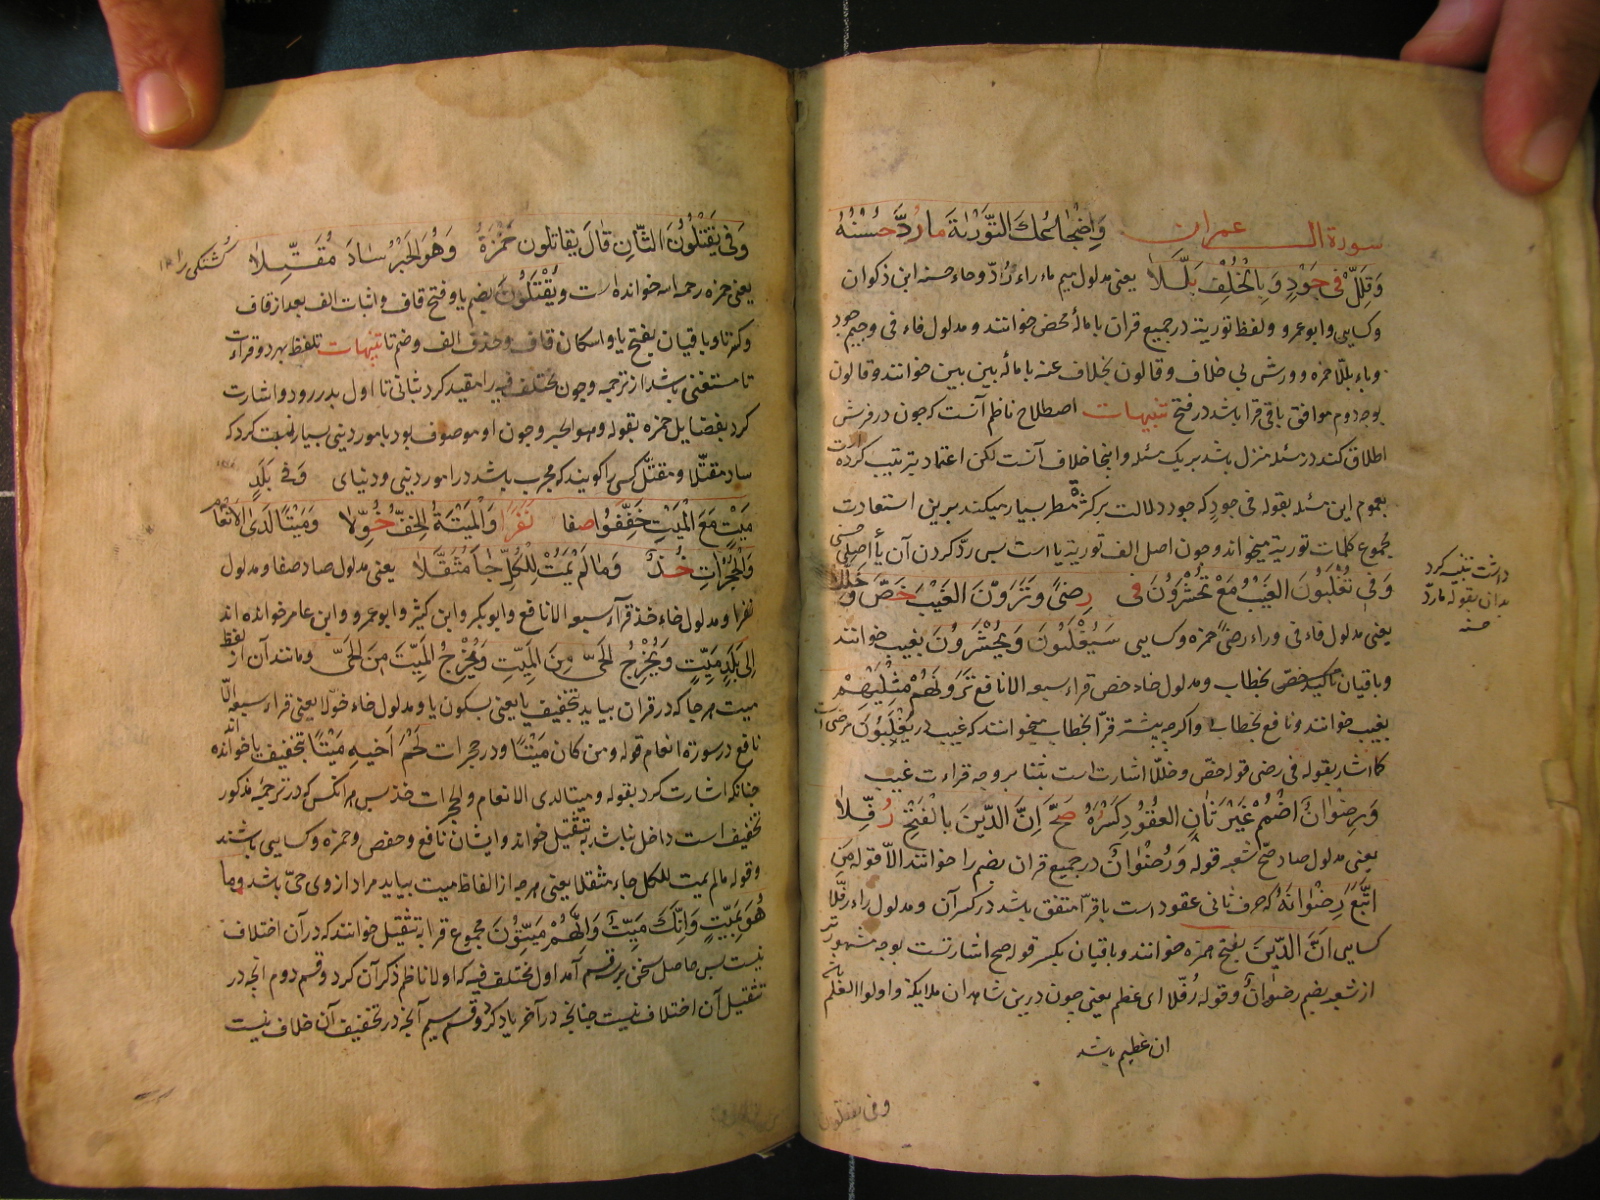 سورة ال عمران وَاِضْجَاعُكَ التَّوْرٰىةَ مارُدَّ حُسْنُهُ
وَقُلِّلَ فى جَوْدٍ وَبِالْخُلْفِ بَلَّلَا یعنی مدلول میم ماء راء رُدّ و حاء حسنه ابن ذکوان
و کسایی و ابو عمرو و لفظ توریة در جمیع قران باماله محض خوانند و مدلول فاء فی و جیم جود
و باء بلّلا حمزه و ورش بی خلاف و قالون بخلاف عنه باماله بین بین خوانند و قالون
بوجه دوم موافق باقی قرا باشد در فتح تنبیهات اصطلاح ناظم آنست که چون در فرش
اطلاق کند در مسئله منزل باشد بر یک مسئله و اینجا خلاف آنست لکن اعتماد بترتیب کرده
بعموم این مسئله بقوله فی جود که جود دلالت بر کثرة مطر بسیار میکند برین استعادت
مجموع کلمات توریة میخواند و چون اصل الف توریة یا است پس ردّ کردن آن یا اصلی
وَفى تُغْلَبُونَ الغَيْبُ مَعْ تُحْشَرُونَ فى رِضىً وَتَرَوْنَ الغَيْبَ خَصَّ وَخُلِّلَا
یعنی مدلول فاء فی و راء رضیً حمزه و کسایی سَيُغْلَبُونَ وَيُحْشَرُونَ بغیب خوانند
و باقیان بخطاب و مدلول خاء خص قراء سبعه الا نافع تَرَوْنَهُمْ مِثْلَيْهِمْ
بغیب خوانند و نافع بخطاب و اکرچه بیشتر قرّا بخطاب میخوانند که غیب در يُغْلَبُونَ
کما اشار بقوله فی رضی قوله خص و خللا اشارت است بثنا بر وجه قراءت غیب
وَرِضْوٰانٌ اضْمُمْ غَيْرَ ثَانِ العُقُودِ كَسْرَهُ صَحَّ اِنَّ الدّينَ بِالْفَتْحِ رُفِّلَا
یعنی مدلول صاد صحّ شعبه قوله وَرُضْوٰانٌ در جمیع قران بضم را خوانند الاّ قوله مَنِ
اتَّبَعَ رِضْوٰانَهُ که حرف ثانی عقود است باقرّا متفق باشد در کسر آن و مدلول راء رفّلا
کسایی اَنَّ الدّينَ بفتح همزه خوانند و باقیان بکسر قوله صح اشارتست بوجه شهور
از شعبه بضم رضوان و قوله رُفّلا ای عظم یعنی چون درین شاهدان ملایکة و اولوا العلم
ان عظیم باشد
داشت تنبیه کرد
بدان بقوله ما ردّ
حسنه
وفی یقتلون
وَفى يَقْتُلُونَ الثَّانِ قَالَ يقاتلون حَمْزَةُ وَهُوَ الحَبْرُ سَادَ مُقَتَّلَا
یعنی حمزه رحمه الله خوانده است وَيُقٰتِلُونَ بضم یا و فتح قاف و اثبات الف بعد از قاف
و کسر تا و باقیان بفتح یا و اسکان قاف و حذف الف و ضم تا تنبیهات تلفظ بهر دو قراءت
تا مستغنی باشد از ترجمه و چون مختلف فیه را مقید کرد بثانی تا اول بدر رود و اشارت
کرد بفضایل حمزه بقوله وهو الحبر و چون او موصوف بود بامور دینی بسیار نسبت کرد که
ساد مقتّلا و مقتّل کسی را کویند که مجرب باشد در امور دینی و دنیای وَفى بَلَدٍ
مَيْتٍ مَعَ الْمَيْتِ خَفَّفُوا صفا نَفَرًا وَالْمَيْتَةُ الخِفُّ خُوِّلَا وَمَيْتًا لَدَى الاَنْعَامِ
وَالحُجُرٰاتِ خُذْ وَمَا لَمْ يَمُتْ لِلْكُلِّ جَا مُثَقَّلَا یعنی مدلول صاد صفا و مدلول
نفرا و مدلول خاء خذ قرآ سبعه الا نافع و ابو بکر و ابن کثیر و ابو عمرو و ابن عامر خوانده اند
اِلى بَلَدٍ مَيْتٍ وَيُخْرِجُ الْحَىَّ مِنَ الْمَيْتِ وَيُخْرِجُ الْمَيْتَ مِنَ الْحَىِّ و مانند آن از لفظ
میت هر جا که در قران بیاید بتخفیف یا یعنی بسکون یا و مدلول خاء خوّلا یعنی قراء سبعه الّا
نافع در سوره انعام قوله و من کان مَيْتًا و در حجرات لَحْمَ اَخيهِ مَيْتًا بتخفیف یا خوانده
چنانکه اشارت کرد بقوله و میتا لدی الانعام والحجرات خذ پس هر آنکس که در ترجمه مذکور
تخفیف است داخل نباشد بتثقیل خواند و ایشان نافع و حفص و حمزه و کسایی باشند
و قوله ما لم یمت للکل جاء مثقلا یعنی هرچه از الفاظ میت بیاید مراد از وی حیّ باشد وما
هُوَ بِمَيِّتٍ وَاِنَّكَ مَيِّتٌ وَاِنَّهُمْ مَيِّتُونَ مجموع قرا بتثقیل خوانند که در آن اختلاف
نیست پس حاصل سخن بر سه قسم آمد اول مختلف فیه که اولا ناظم ذکر آن کرد و قسم دوم آنچه در
تثقیل آن اختلاف نیست چنانچه در آخر یاد کرد و قسم سیم آنچه در تخفیف آن خلاف نیست